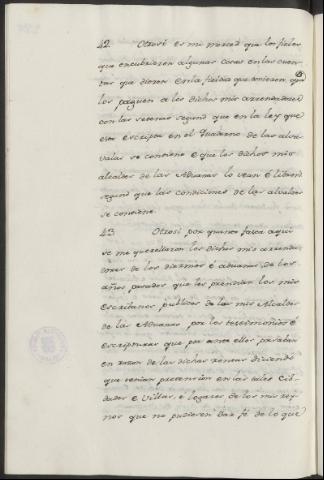 42. Otrosi es mi merced que los fieles
que encubrieron algunas cosas en las cuen-
tas que dieron en la fieldad que tovieron que
los paguen a los dichos mis arrendadores
con las setenas segund que en la ley que
esta escripta en el Quaderno de las alca-
valas se contiene e que los dichos mis
alcaldes de las Aduanas lo vean e libren
segund que las condiciones de las alcavalas
se contiene.
43. Otrosi por quanto fasta aqui
se me querellaron los dichos mis arrenda-
dores de los diezmos é aduanas de los
años pasados que les prendian los mis
escribanos publicos de los mis Alcaldes
de las Aduanas por los testimonios é
escripturas que por ante ellos pasaban
en razon de las dichas rentas diciendo
que tenian pretension en las tales Cib-
dades é Villas, é logares de los mis rey-
nos que no pudiesen dar fé de lo que